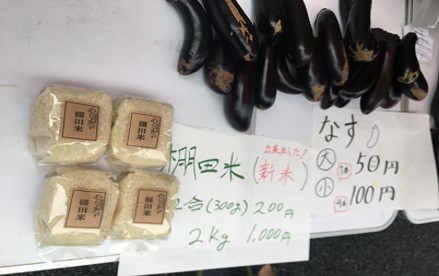 棚田米
棚田米
棚田米
棚田米
棚田米(新米)
出来ました!
2合(300g) 200円
2kg 1,000円
なす
大 1本 50円
小 100円